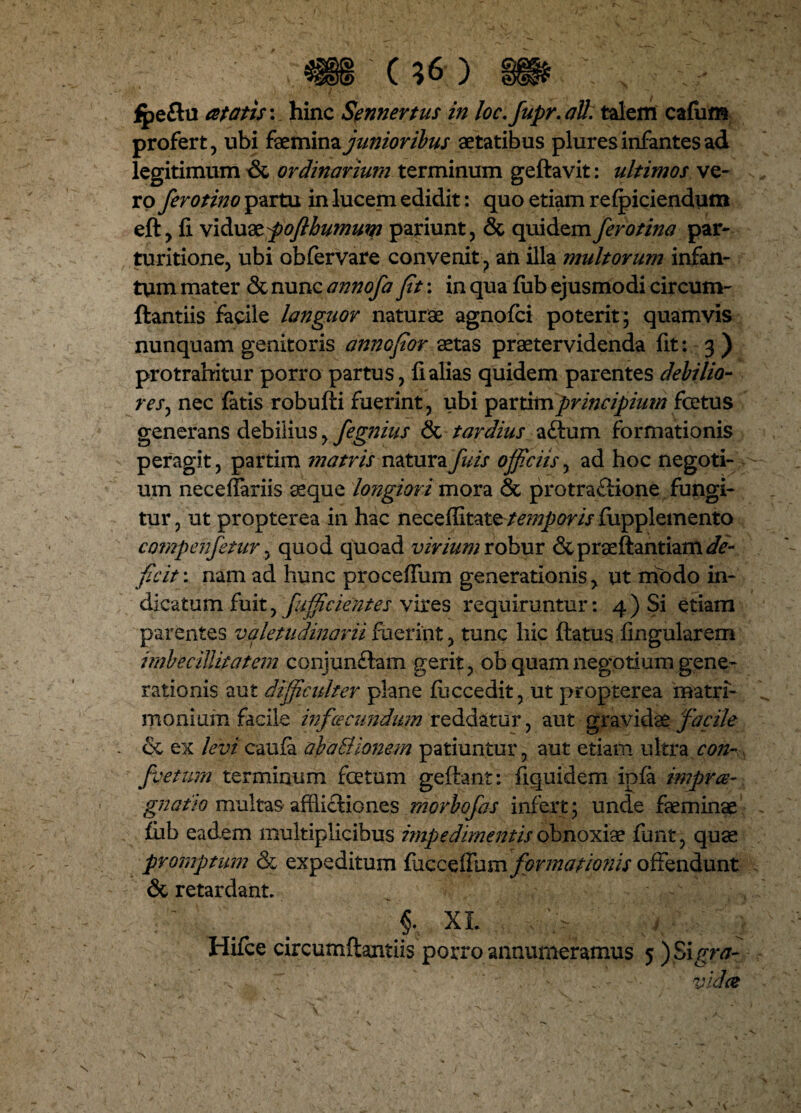 ( 36 )
ſpectu ætatis: hinc Sennertus in loc. ſupr. all. talem caſum
profert, ubi fæmina junioribus ætatibus plures infantes ad
legitimum & ordinarium terminum geſtavit: ultimos ve-
ro ſerotino partu in lucem edidit: quo etiam reſpiciendum
eſt, ſi viduæ poſthumum pariunt, & quidem ſerotina par-
turitione, ubi obſervare convenit, an illa multorum infan-
tum mater & nunc annoſa ſit: in qua ſub ejusmodi circum-
ſtantiis facile languor naturæ agnoſci poterit; quamvis
nunquam genitoris annoſior ætas prætervidenda ſit: 3 )
protrahitur porro partus, ſi alias quidem parentes debilio-
res, nec ſatis robuſti fuerint, ubi partim principium fœtus
generans debilius, ſegnius & tardius actum formationis
peragit, partim matris natura ſuis officiis, ad hoc negoti-
um neceſſariis æque longiori mora & protractione fungi-
tur, ut propterea in hac neceſſitate temporis ſupplemento
compenſetur, quod quoad virium robur & præſtantiam de-
ficit: nam ad hunc proceſſum generationis, ut modo in-
dicatum fuit, ſufficientes vires requiruntur: 4) Si etiam
parentes valetudinarii fuerint, tunc hic ſtatus ſingularem
imbecillitatem conjunctam gerit, ob quam negotium gene-
rationis aut difficulter plane ſuccedit, ut propterea matri-
monium facile infœcundum reddatur, aut gravidæ facile
& ex levi cauſa abactionem patiuntur, aut etiam ultra con-
ſvetum terminum fœtum geſtant: ſiquidem ipſa impræ-
gnatio multas afflictiones morboſas infert; unde fæminæ
ſub eadem multiplicibus impedimentis obnoxiæ ſunt, quæ
promptum & expeditum ſucceſſum formationis offendunt
& retardant.
§. XI.
Hiſce circumſtantiis porro annumeramus 5 ) Si gra-
vidæ